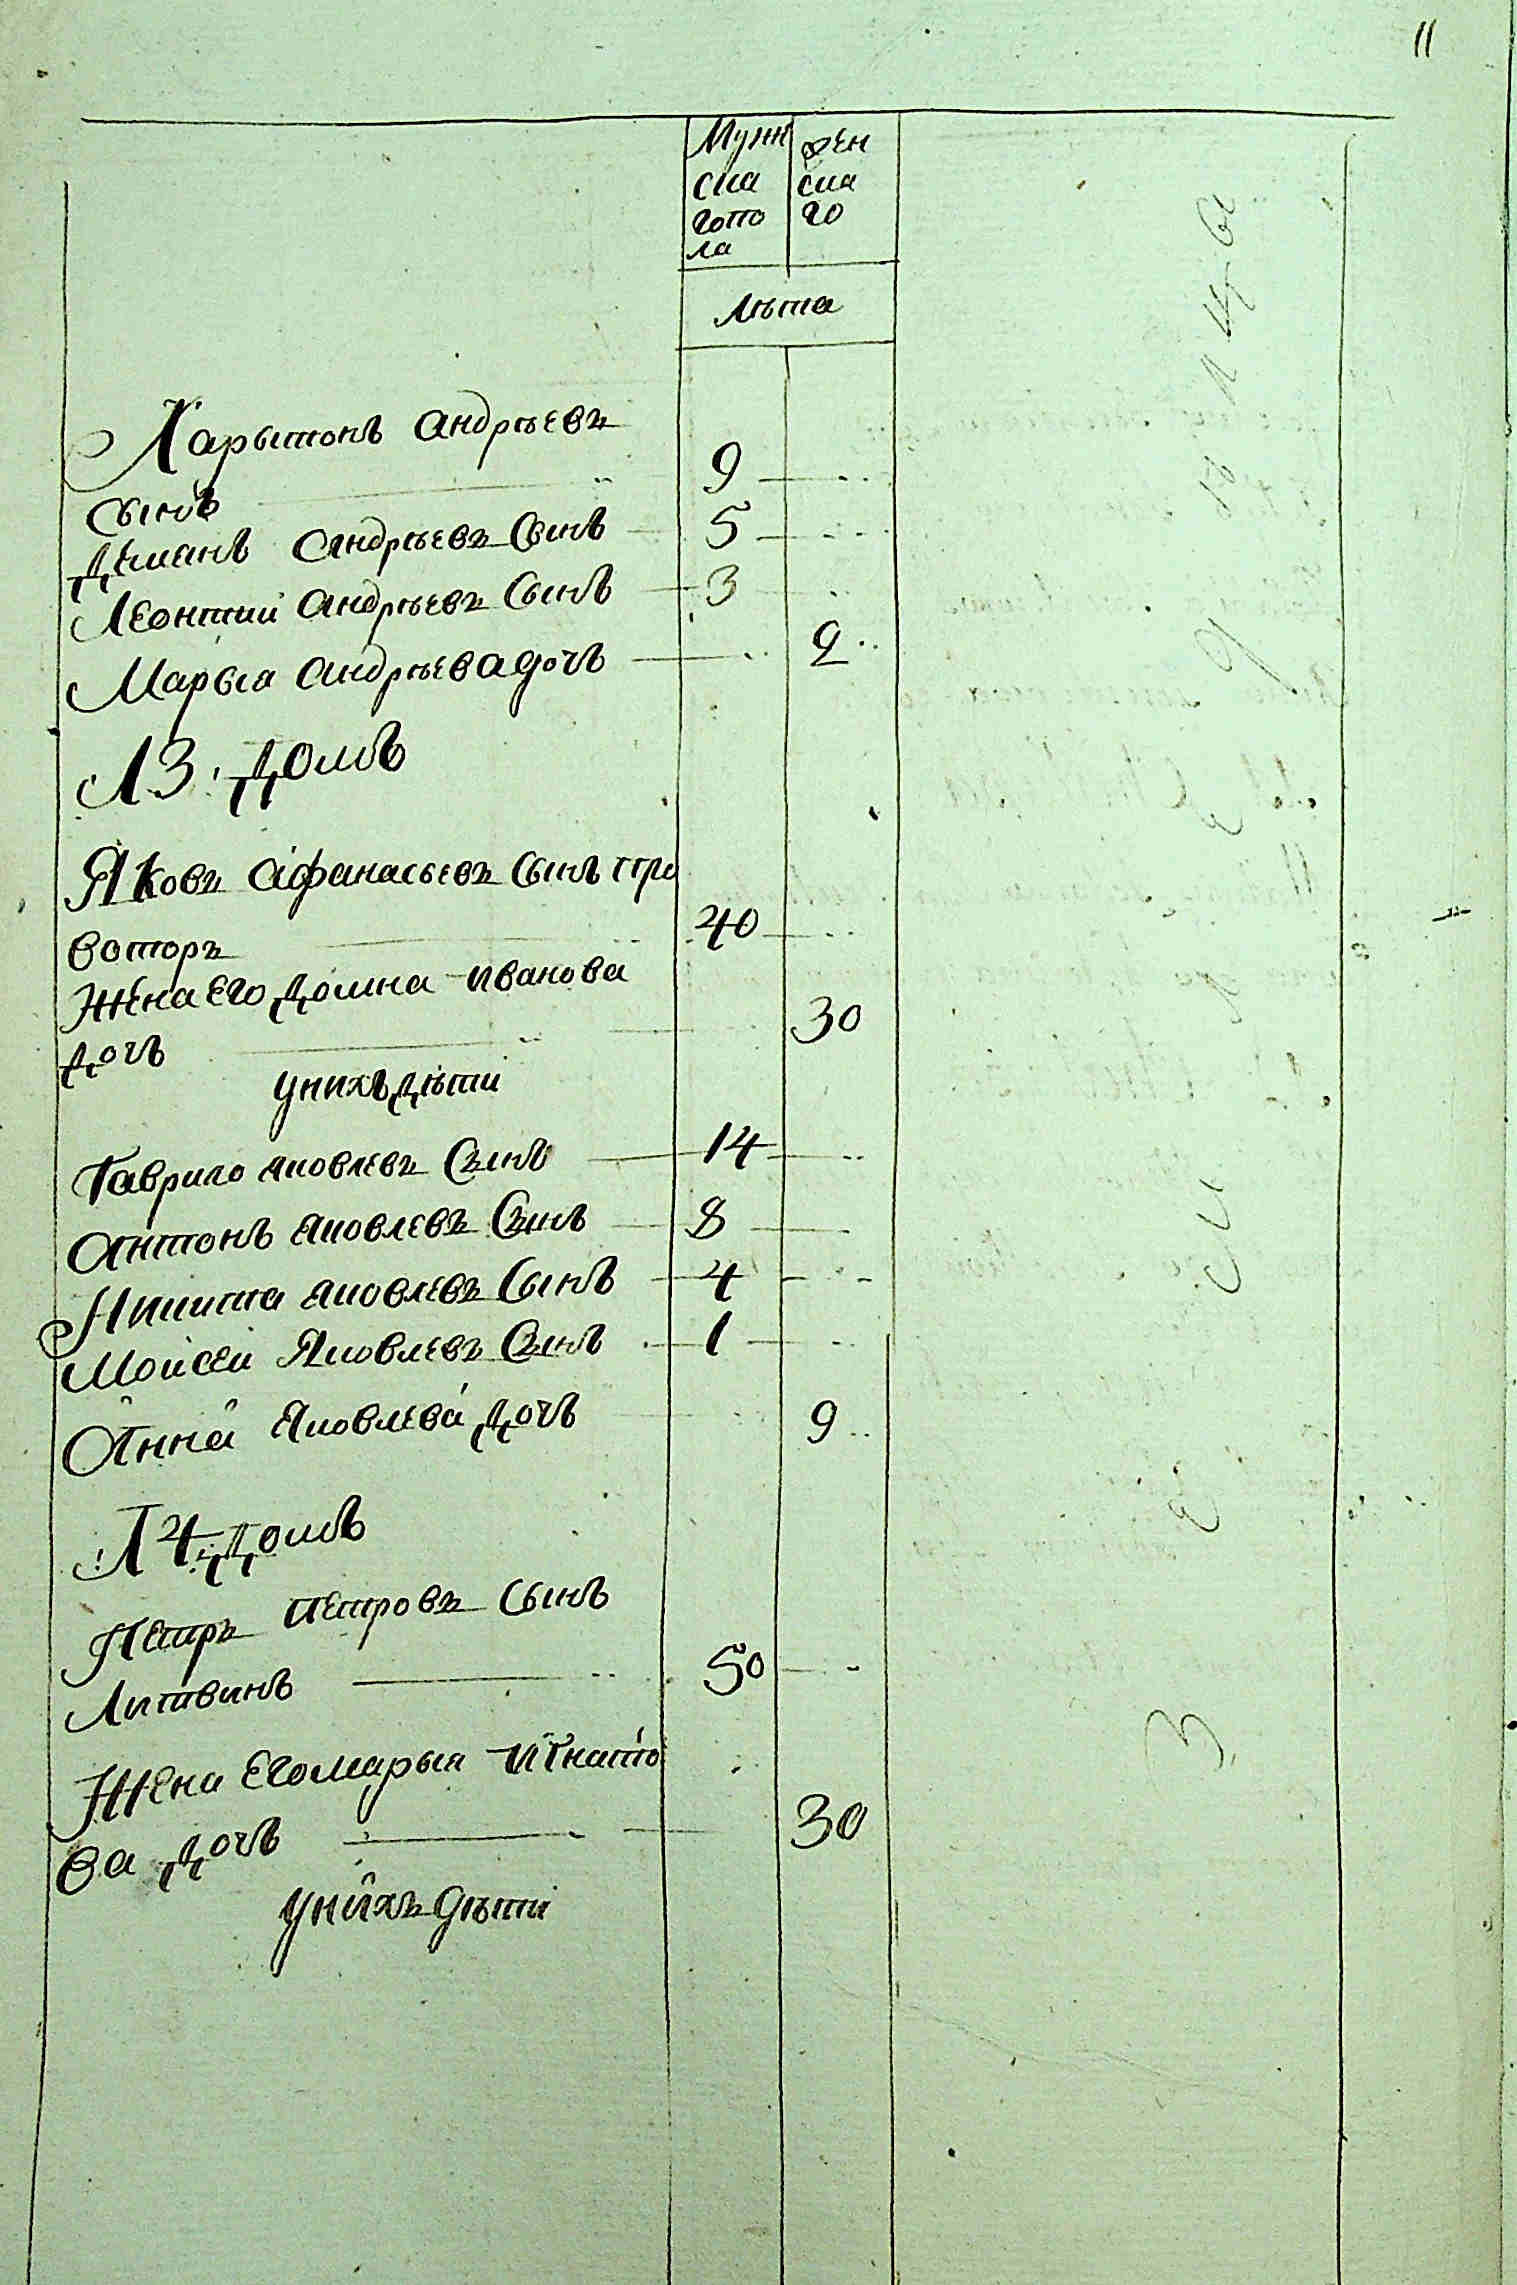 11
Мужскаго пола
Женскаго
Лѣта
Харытонъ Андрѣевъ
Сынъ 9
Демянъ Андрѣевъ Сынъ 5
Леонтий Андрѣевъ Сынъ 3
Марыя Андрѣева дочъ 2
13 Домъ
Яковъ Афанасьевъ Сынъ При
воторъ 40
Жена Его Домна Иванова
Дочъ 30
У нихъ Дѣти
Гаврило Яковлевъ Сынъ 14
Антонъ Яковлевъ Сынъ 8
Никита Яковлевъ Сынъ 4
Моисей Яковлевъ Сынъ 1
Анна Яковлева Дочъ 9
14 Домъ
Петръ Петровъ Сынъ
Литвинъ 50
Жена Его Марыя Игнато
ва Дочъ 30
У нихъ дѣти